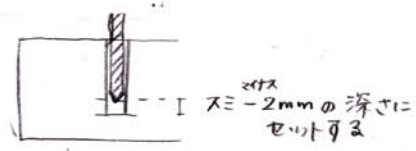 マイナス
スミー2mmの深さに
セットする